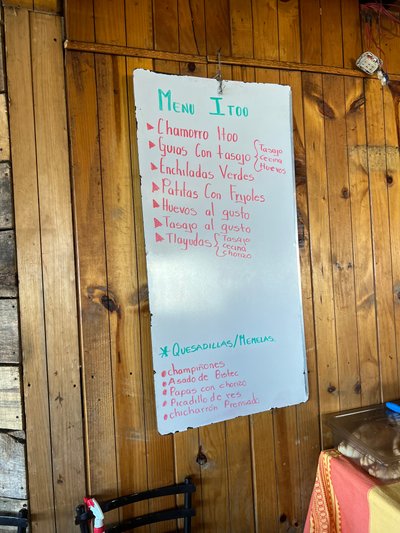 Menu Itoo
Chamorro Hoo
Guias Con tasajo { Tasajo
cecina
Huevos
Enchiladas Verdes
Patitas Con Frijoles
Huevos al gusto
Tasajo al gusto
Tlayudas { Tasajo
cecina
chorizo
* Quesadillas/Memelas
• champiñones
• Asado de Bistec
• Papas con chorizo
• Picadillo de res
• chicharrón Prensado